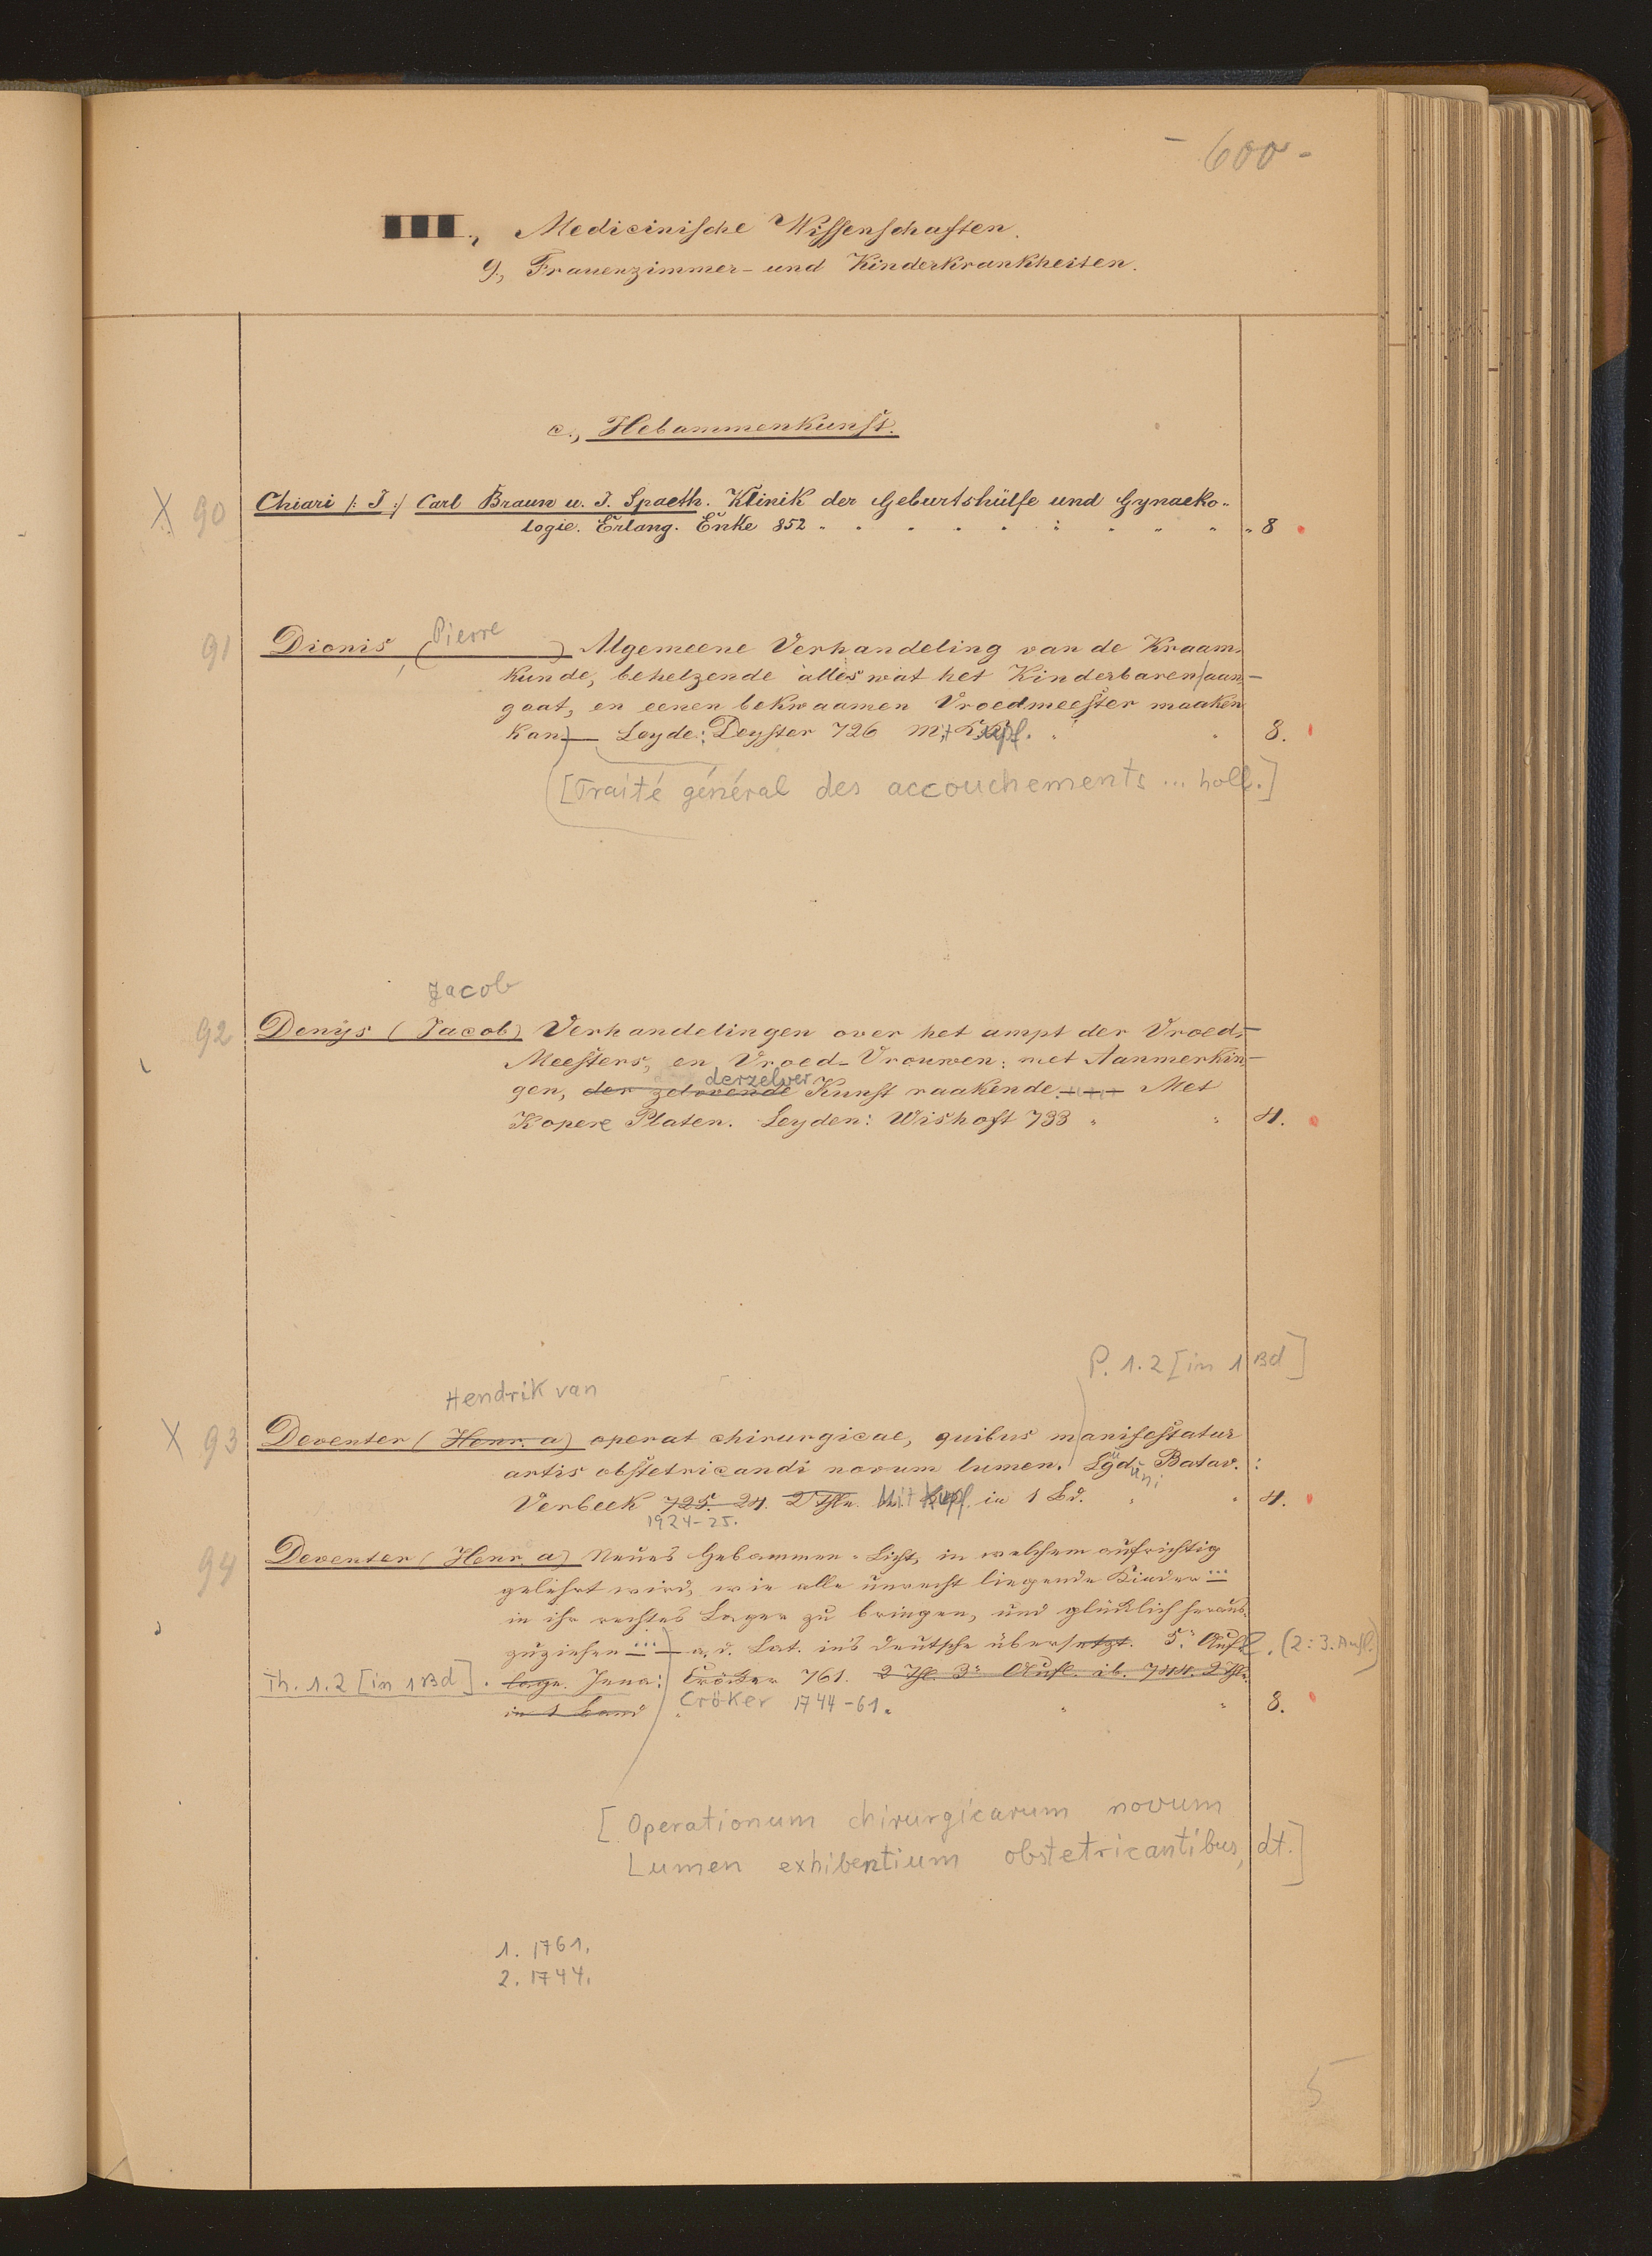 - 600 -
III., Medicinische Wissenschaften.
9, Frauenzimmer- und Kinderkrankheiten.
c., Hebammenkunst.
X 90 Chiari /: J :/ Carl Braun u. J. Spaeth. Klinik der Geburtshülfe und Gynaeko-
logie. Erlang. Enke 852 " 8
91 Dionis, (Pierre) Algemeene Verhandeling van de Kraam-
kunde, behelzende alles wat het Kinderbaren aan-
gaat, en eenen bekwaamen Vroedmeester maaken
kan) — Leyde: Deyster 726 Mit Kupf. 8.
[Traité général des accouchements ... holl.]
Jacob
92 Denys (Jacob) Verhandelingen over het ampt der Vroed-
Meesters, en Vroed-Vrouwen: met Aanmerkin-
derzelver
gen, der zelvende Kunst raakende. Met
Kopere Platen. Leyden: Wishoft 733 " 4.
P. 1.2 [in 1 Bd]
Hendrik van
X 93 Deventer (Henr. a) operat chirurgicae, quibus manifestatur
artis obstetricandi novum lumen. Lgd. Batav. :
Verbeek 725. 24. 2 Thle. Mit Kupf. in 1 Bd. " 4.
1924-25.
94 Deventer (Henr. a) Neues Hebammen-Licht, in welchem aufrichtig
gelehrt wird, wie alle unrecht liegende Kinder ...
in ihr rechtes Lager zu bringen, und glücklich heraus-
zuziehen ... — a. d. Lat. ins deutsche übersetzt. 5. Aufl. (2: 3. Aufl.)
Th. 1.2 [in 1 Bd]. lage. Jena: Cröker 761. 2 Thl. 3e Aufl. ib. 744. 2 Thle.
in 1 Band Cröker 1744-61. " 8.
[Operationum chirurgicarum novum
Lumen exhibentium obstetricantibus, dt.]
1. 1761.
2. 1744.
5